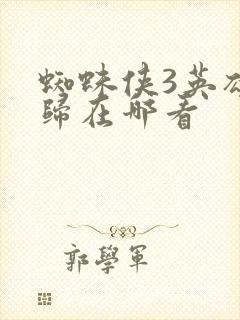 蜘蛛侠3英
歸在哪看
郭學軍